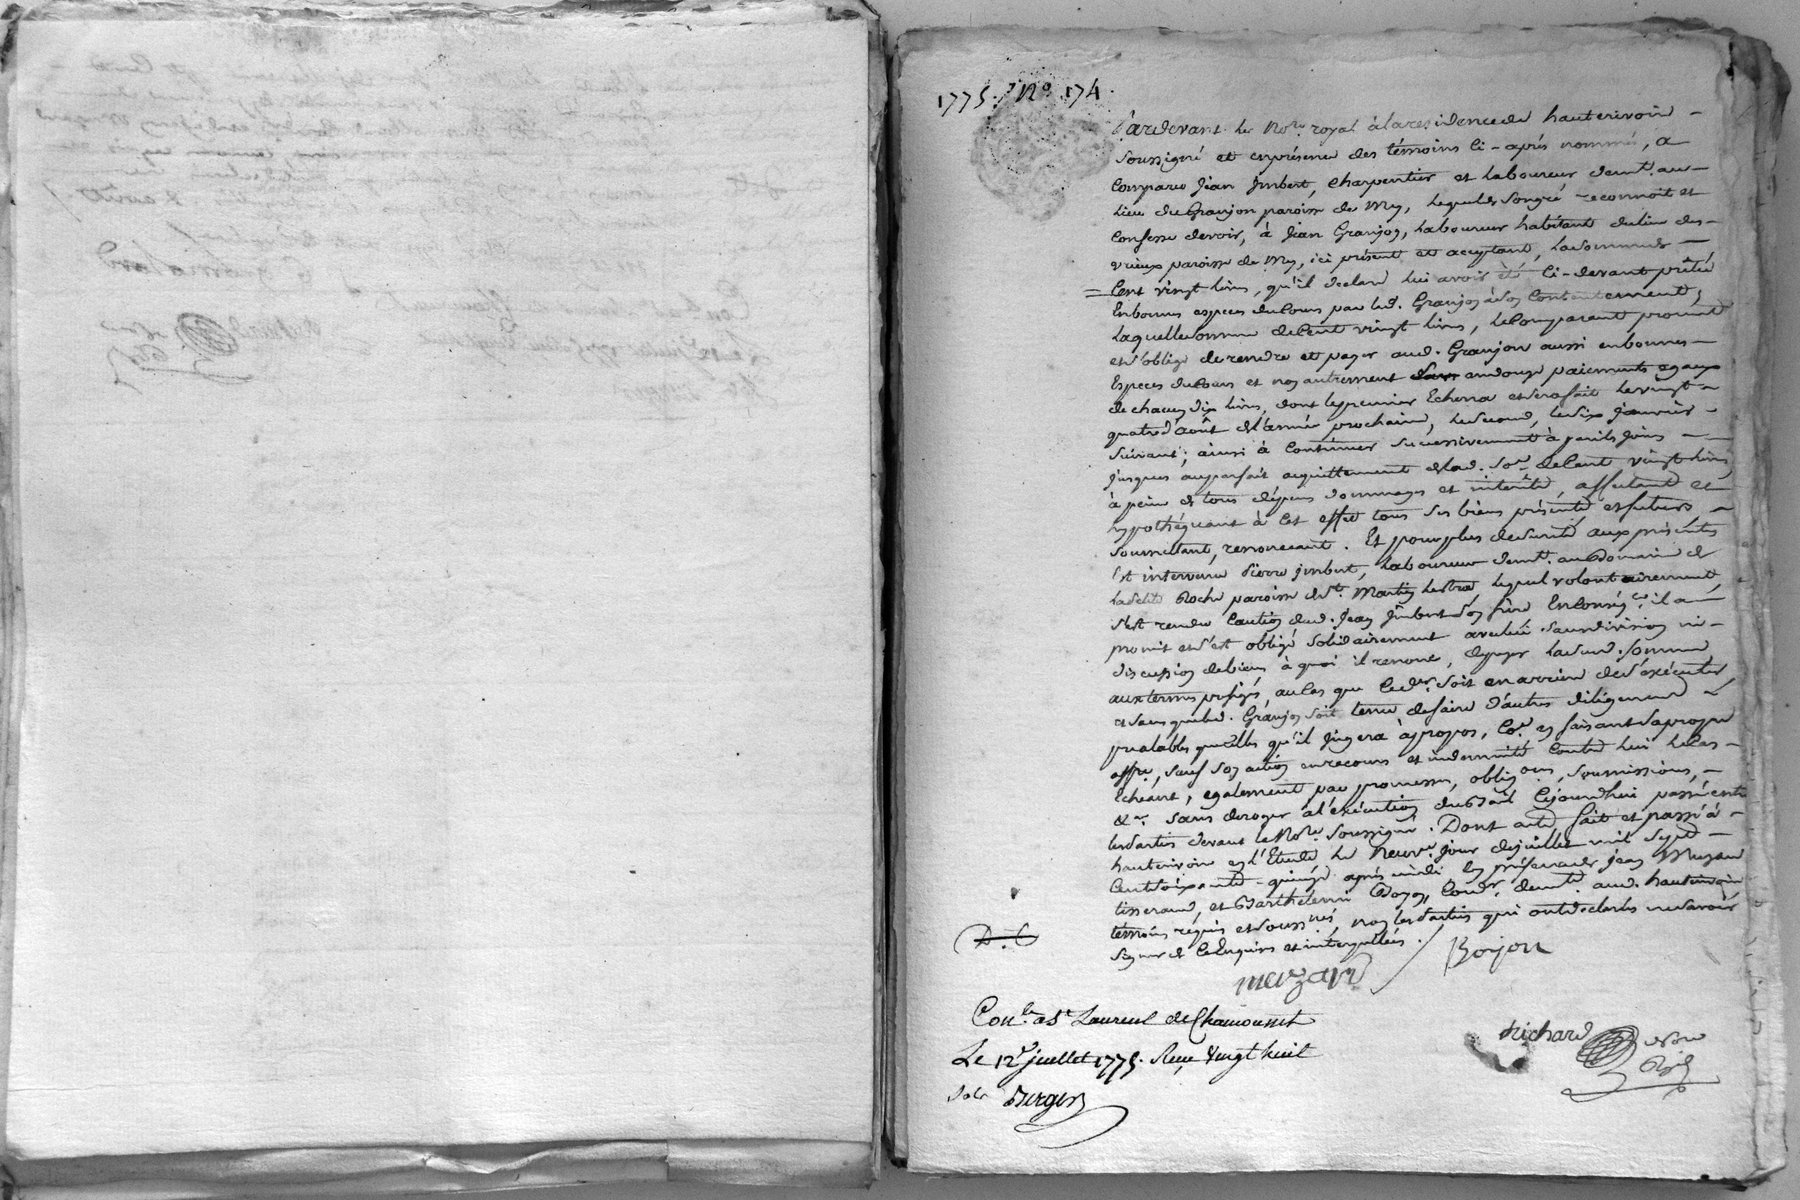 1775. / N.º 174.
Pardevant le No.re royal à la residence de hauterivoire
soussigné et en présence des témoins ci-après nommés, a
comparu Jean Jmbert, charpentier et laboureur demt. au
lieu du Granjon paroisse de Mys, lequel de son gré reconnoit et
confesse devoir, à Jean Granjon, laboureur habitant du lieu des
vieux paroisse de Mys, ici présent et acceptant, la somme de
cent vingt livres, qu'il declare lui avoir été ci-devant prêtée
en bonnes especes du cours par led. Granjon à son contentement,
laquelle somme de cent vingt livres, le comparant promet
et s'oblige de rendre et payer aud. Granjon aussi en bonnes
especes du cours et non autrement en douze paiements egaux
de chacun dix livres, dont le premier echerra et sera fait le vingt
quatre d'août de l'année prochaine, le second, le six janvier
suivant; ainsi à continuer successivement à pareils jours
jusques au parfait acquittement de lad. so.e de cent vingt livres
à peine de tous dépens dommages et interêts, affectant et
hypothéquant à cet effet tous ses biens présents et futurs,
soumettant, renonceant. Et pour plus de sureté aux présentes
est intervenu Pierre Jmbert, laboureur demt. au domaine de
Roche paroisse de St. Martin Lestra, lequel volontairement,
s'est rendu caution dud. Jean Jmbert son frère en conséq.ce il a
promis et s'est obligé solidairement avec lui sans division ni
discussion de biens à quoi il renonce, de payer la susd. somme
aux termes préfigés, au cas que led. soit en arriere de s'exécuter,
et sans que led. Granjon soit tenu de faire d'autres diligences
préalables que celles qu'il jugera àpropos, en faisant sa propre
affre., sauf son action en recours et indemnité contre lui le cas
echeant, egalement par promesses, oblig.ons, soumissions,
&.a sans deroger à l'exécution du Bail cejourd'hui passé entre
les Parties devant le No.re soussigné. Dont acte fait et passé à
hauterivoire en l'Etude le neuv.e jour de juillet mil sept
cent soixante-quinze après midi en présence de Jean Meyzard
tisserand, et Barthélemi Boyon, demt. aud. hauterivoire
témoins requis et souss.nés, non les Parties qui ont declaré ne savoir
signer de ce enquises et interpellées.
Boyon
meyzard
Con.lé a St Laurent de Chamousset
Le 12e juillet 1775. Reçu vingt huit
sols Berger
Richard